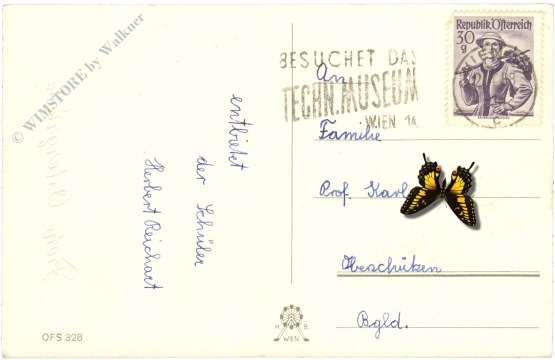 © WIMSTORE by Walkner
entbietet
der Schüler
Herbert Reichart
OFS 328
H B
WIEN
BESUCHET DAS
TECHN. MUSEUM
WIEN 14
Republik Österreich
30
g
An
Familie
Prof. Karl
Oberschützen
Bgld.